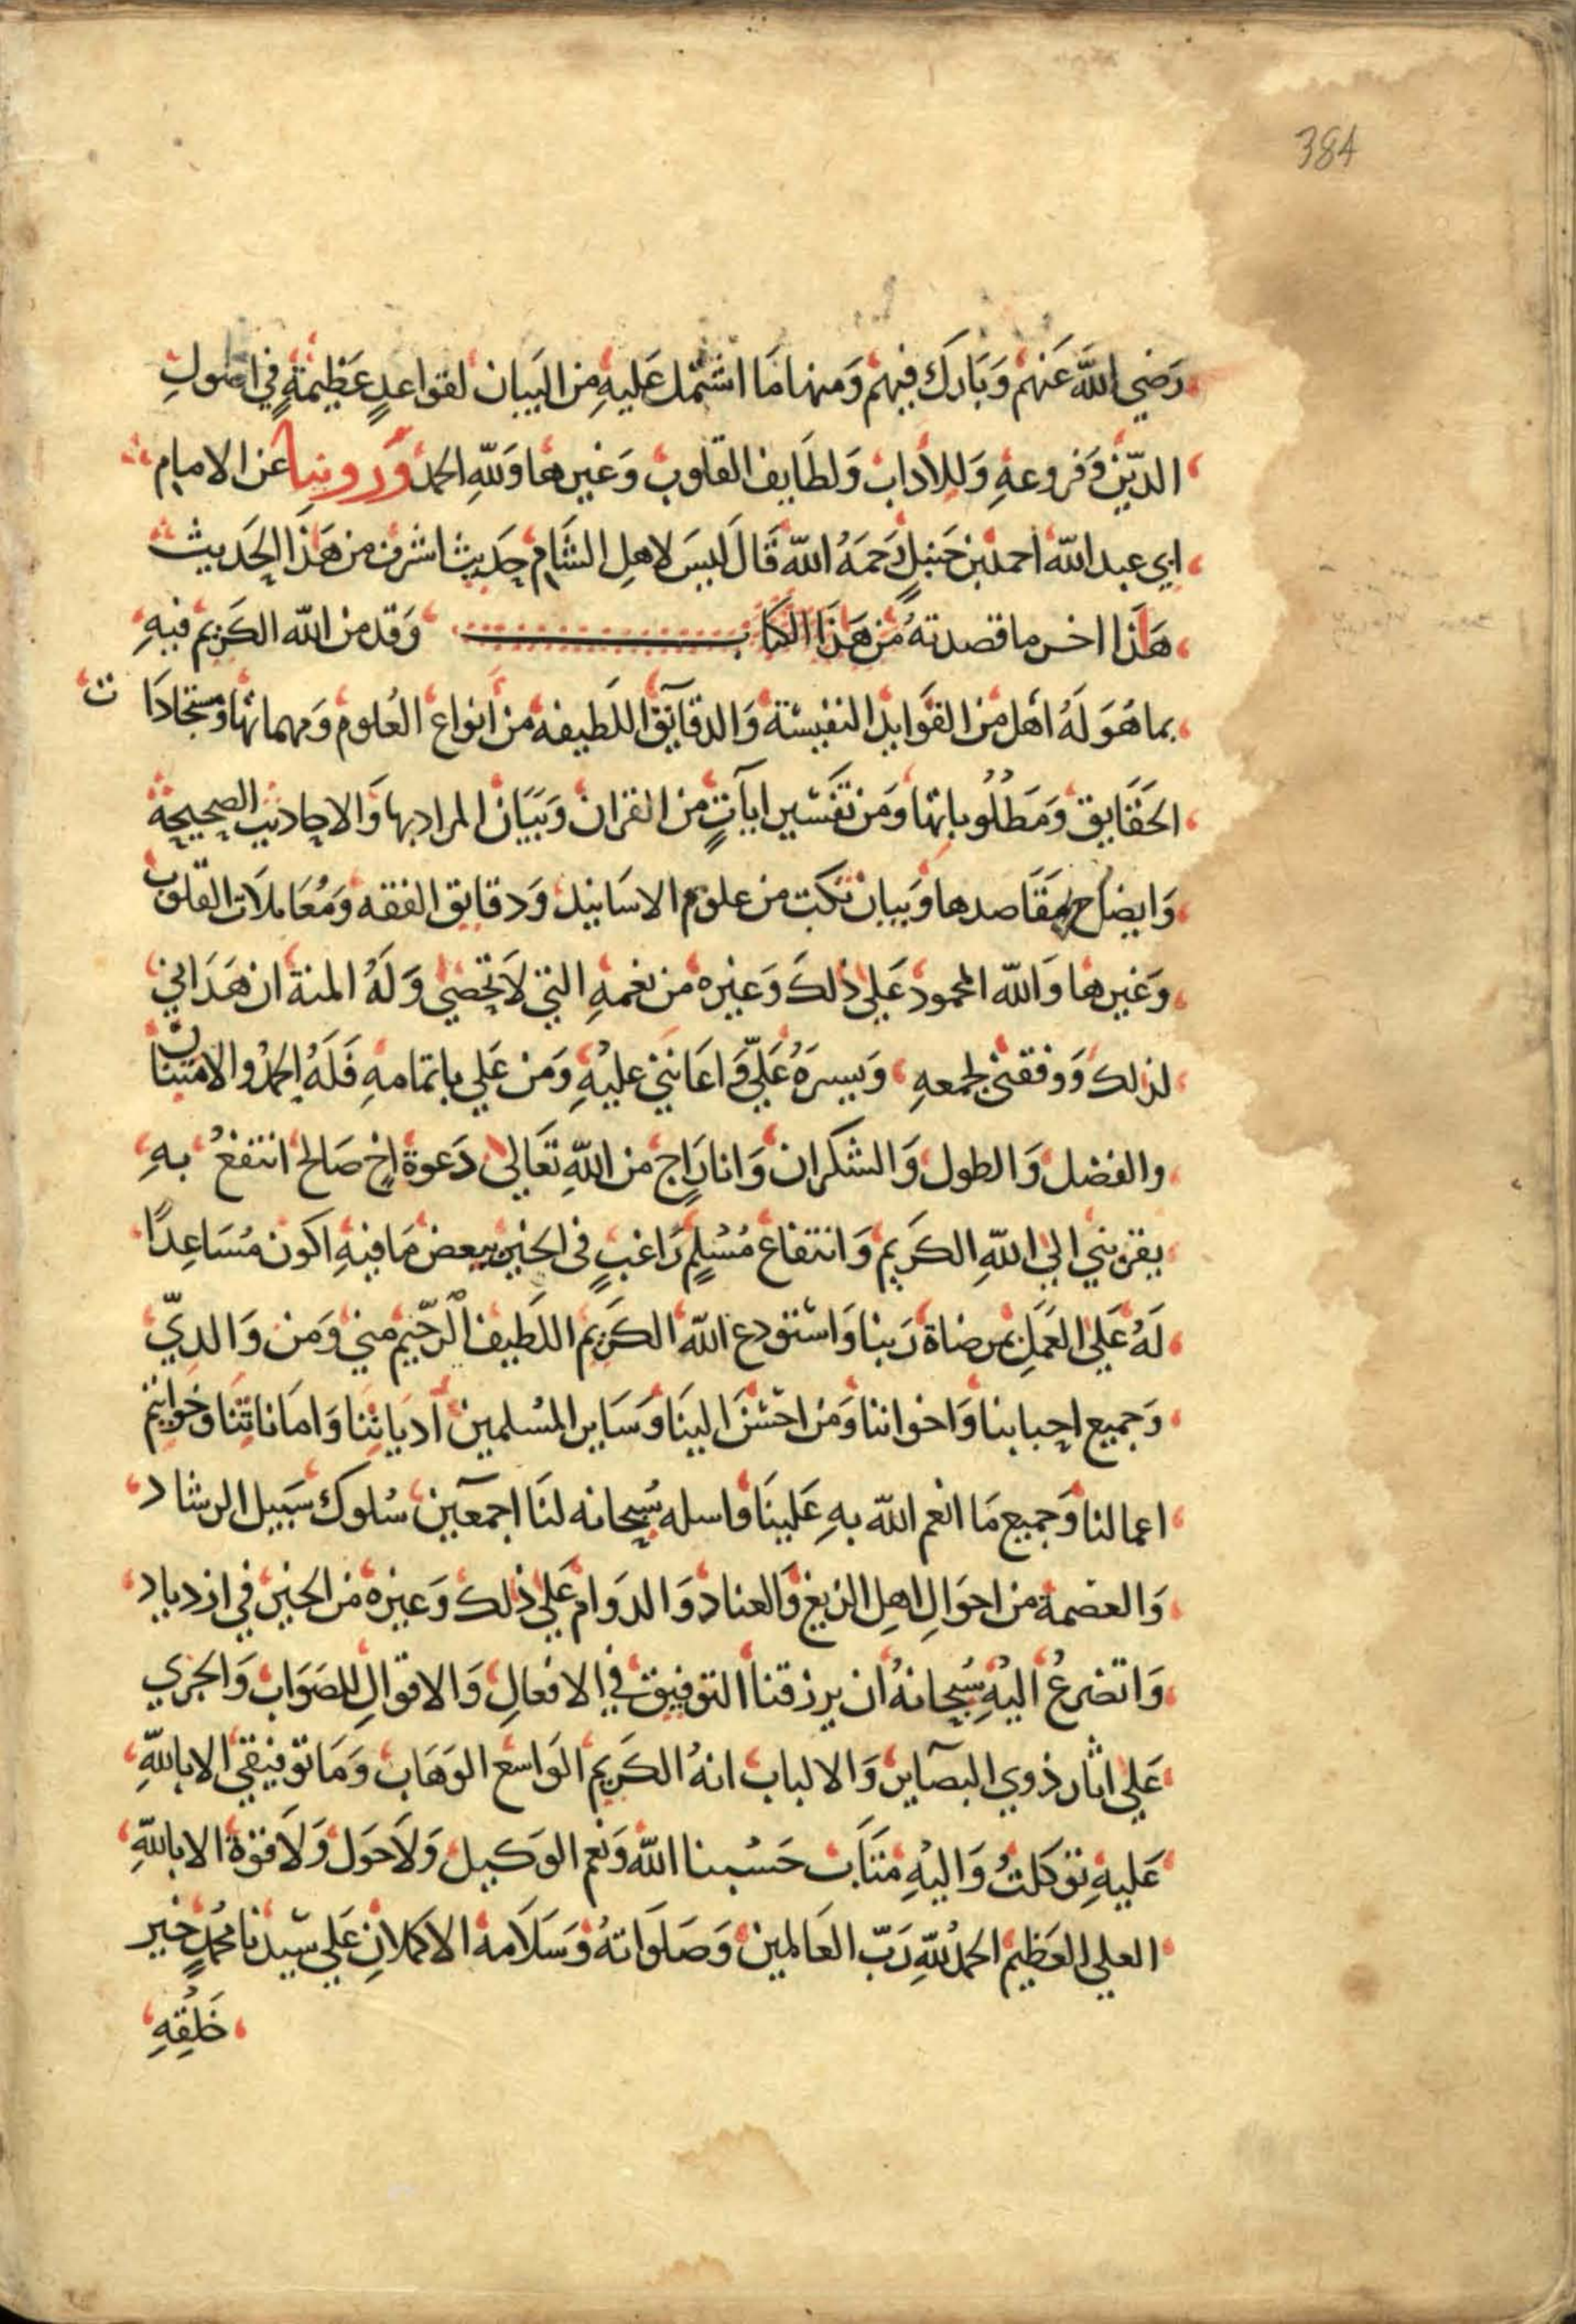 384
رَضِي اللهَ عَنهُم وَبَارَك فيهم وَمنها مَا اشتمل عَليهِ من البَيان لقواعدٍ عَظيمَةٍ في اصُولِ
الدّين وَفروعهِ وَللادَاب وَلطَايف القلوب وَغيرها وَللهِ الحمد وَروينا عَن الامام
ابي عبد الله احمد بن حَنبلٍ رَحمَهُ الله قَالَ لَيسَ لاهلِ الشَّام حَديث اشرف من هَذا الحَديث
هَذَا اخر ما قصدتهُ مِن هَذَا الكتاب وَقد من الله الكَريم فيهِ
بما هُوَ لَهُ اهل من الفَوايد النفيسَة وَالدقآيق اللَطيفه من انواع العُلوم وَمهماتها وَمستجادَات
الحَقَايق وَمَطلُوباتها وَمن تَفسير ايَاتٍ من القران وَبَيَان المراد بها وَالاحاديث الصحيحة
وَايضاح مَقَاصدها وَبيان نكت من علوم الاسَانيد وَدقايق الفقه وَمُعَاملاَت القلوب
وَغيرها وَالله المحمود عَلي ذلكَ وَغيره من نعمهِ التي لاَ تحصَي وَلَهُ المنة ان هَدَاني
لذلك وَوفقني لجمعهِ وَيسرَهُ عَليَّ وَاعَانني عليْهِ وَمن عَلي باتمامهِ فَلَهُ الحَمدُ والامتنان
والفضل وَالطول وَالشكران وَانا رَاجٍ من اللهِ تَعَالي دَعوة اخٍ صَالح انتفعُ بهِ
يقربني الي اللهِ الكريم وَانتفاع مُسْلمٍ رَاغبٍ في الخير ببعض مَا فيهِ اكون مُسَاعِدًا
لهُ عَلي العَمَلِ بمرضاة رَبنا وَاستودع الله الكَريم اللطيف الرّحيم مني وَمن وَالديّ
وَجميع احبابنا وَاخواننا وَمن احسَنَ الينَا وَسَاير المسْلمين ادياننا وَامَاناتنَا وَخَواتيم
اعمالنا وَجميع مَا انعم الله بهِ عَلينَا وَاسله سُبحانه لنَا اجمعَين سُلوك سَبيل الرشاد
وَالعصمة من احوَالِ اهلِ الزيغ وَالعناد وَالدوَام عَلي ذلك وَغيره من الخير في ازدياد
وَاتضرعُ اليْهِ سُبحانهُ ان يرزقنا التوفيق في الافعالِ وَالاقوالِ للصَوَاب وَالجري
عَلي اثار ذوي البصَاير وَالالباب انهُ الكَريم الوَاسع الوَهَاب وَمَا توفيقي الا باللهِ
عَليهِ توَكلتُ وَاليْهِ مَتَاب حَسْبنا الله وَنعم الوَكيل وَلاَ حَول وَلاَ قوة الا باللهِ
العلي العَظيم الحمدُ للهِ رَبّ العَالمين وَصَلَوَاتهُ وَسَلاَمهُ الاكملانِ عَلي سَيّدنا مُحمّدٍ خَير
خَلقِهِ